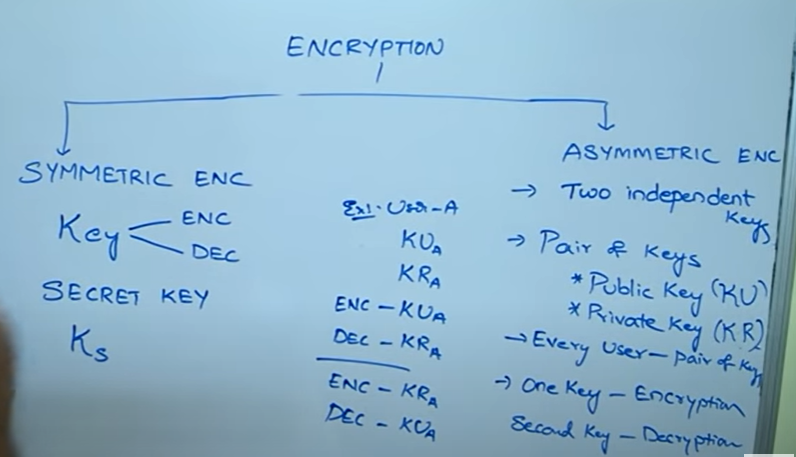 ENCRYPTION
SYMMETRIC ENC
Key
ENC
DEC
SECRET KEY
Ks
Ex1: User-A
KUA
KRA
ENC - KUA
DEC - KRA
ENC - KRA
DEC - KUA
ASYMMETRIC ENC
→ Two independent
Keys
→ Pair of Keys
* Public Key (KU)
* Private Key (KR)
→ Every User - pair of Keys
→ One Key - Encryption
Second Key - Decryption